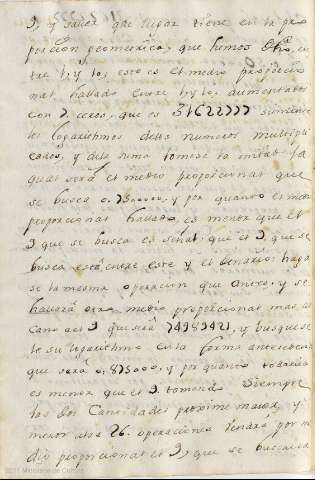 9, y saver que lugar tiene en la pro
porcion geometrica, que hemos dho, en
tre 1, y 10, esto es el medio proporcio
nal hallado entre 1, y 10, aumentados
con 7 ceros, que es 31622777 sumense
los logarithmos destos numeros multipli
cados, y dela suma tomese la mitad la
qual será el medio proporcional que
se busca 0.500000, y por quanto el medio
proporcional hallado es menor que el
9 que se busca es señal, que el 9 que se
busca está entre este y el denario; haga
se la mesma operacion que antes, y se
hallará otro medio proporcional mas cer
cano al 9 que será 74989421, y busquese
le su logarithmo en la forma antecedente
que será 0.875000, y por quanto todavia
es menor que el 9 tomense siempre
las dos cantidades proxime maior, y
menor a las 26. operaciones vendrá por me
dio proporcional el 9, que se buscava
2011 Ministerio de Cultura